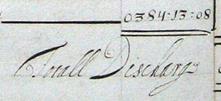 0384:13:08
Totall Discharg